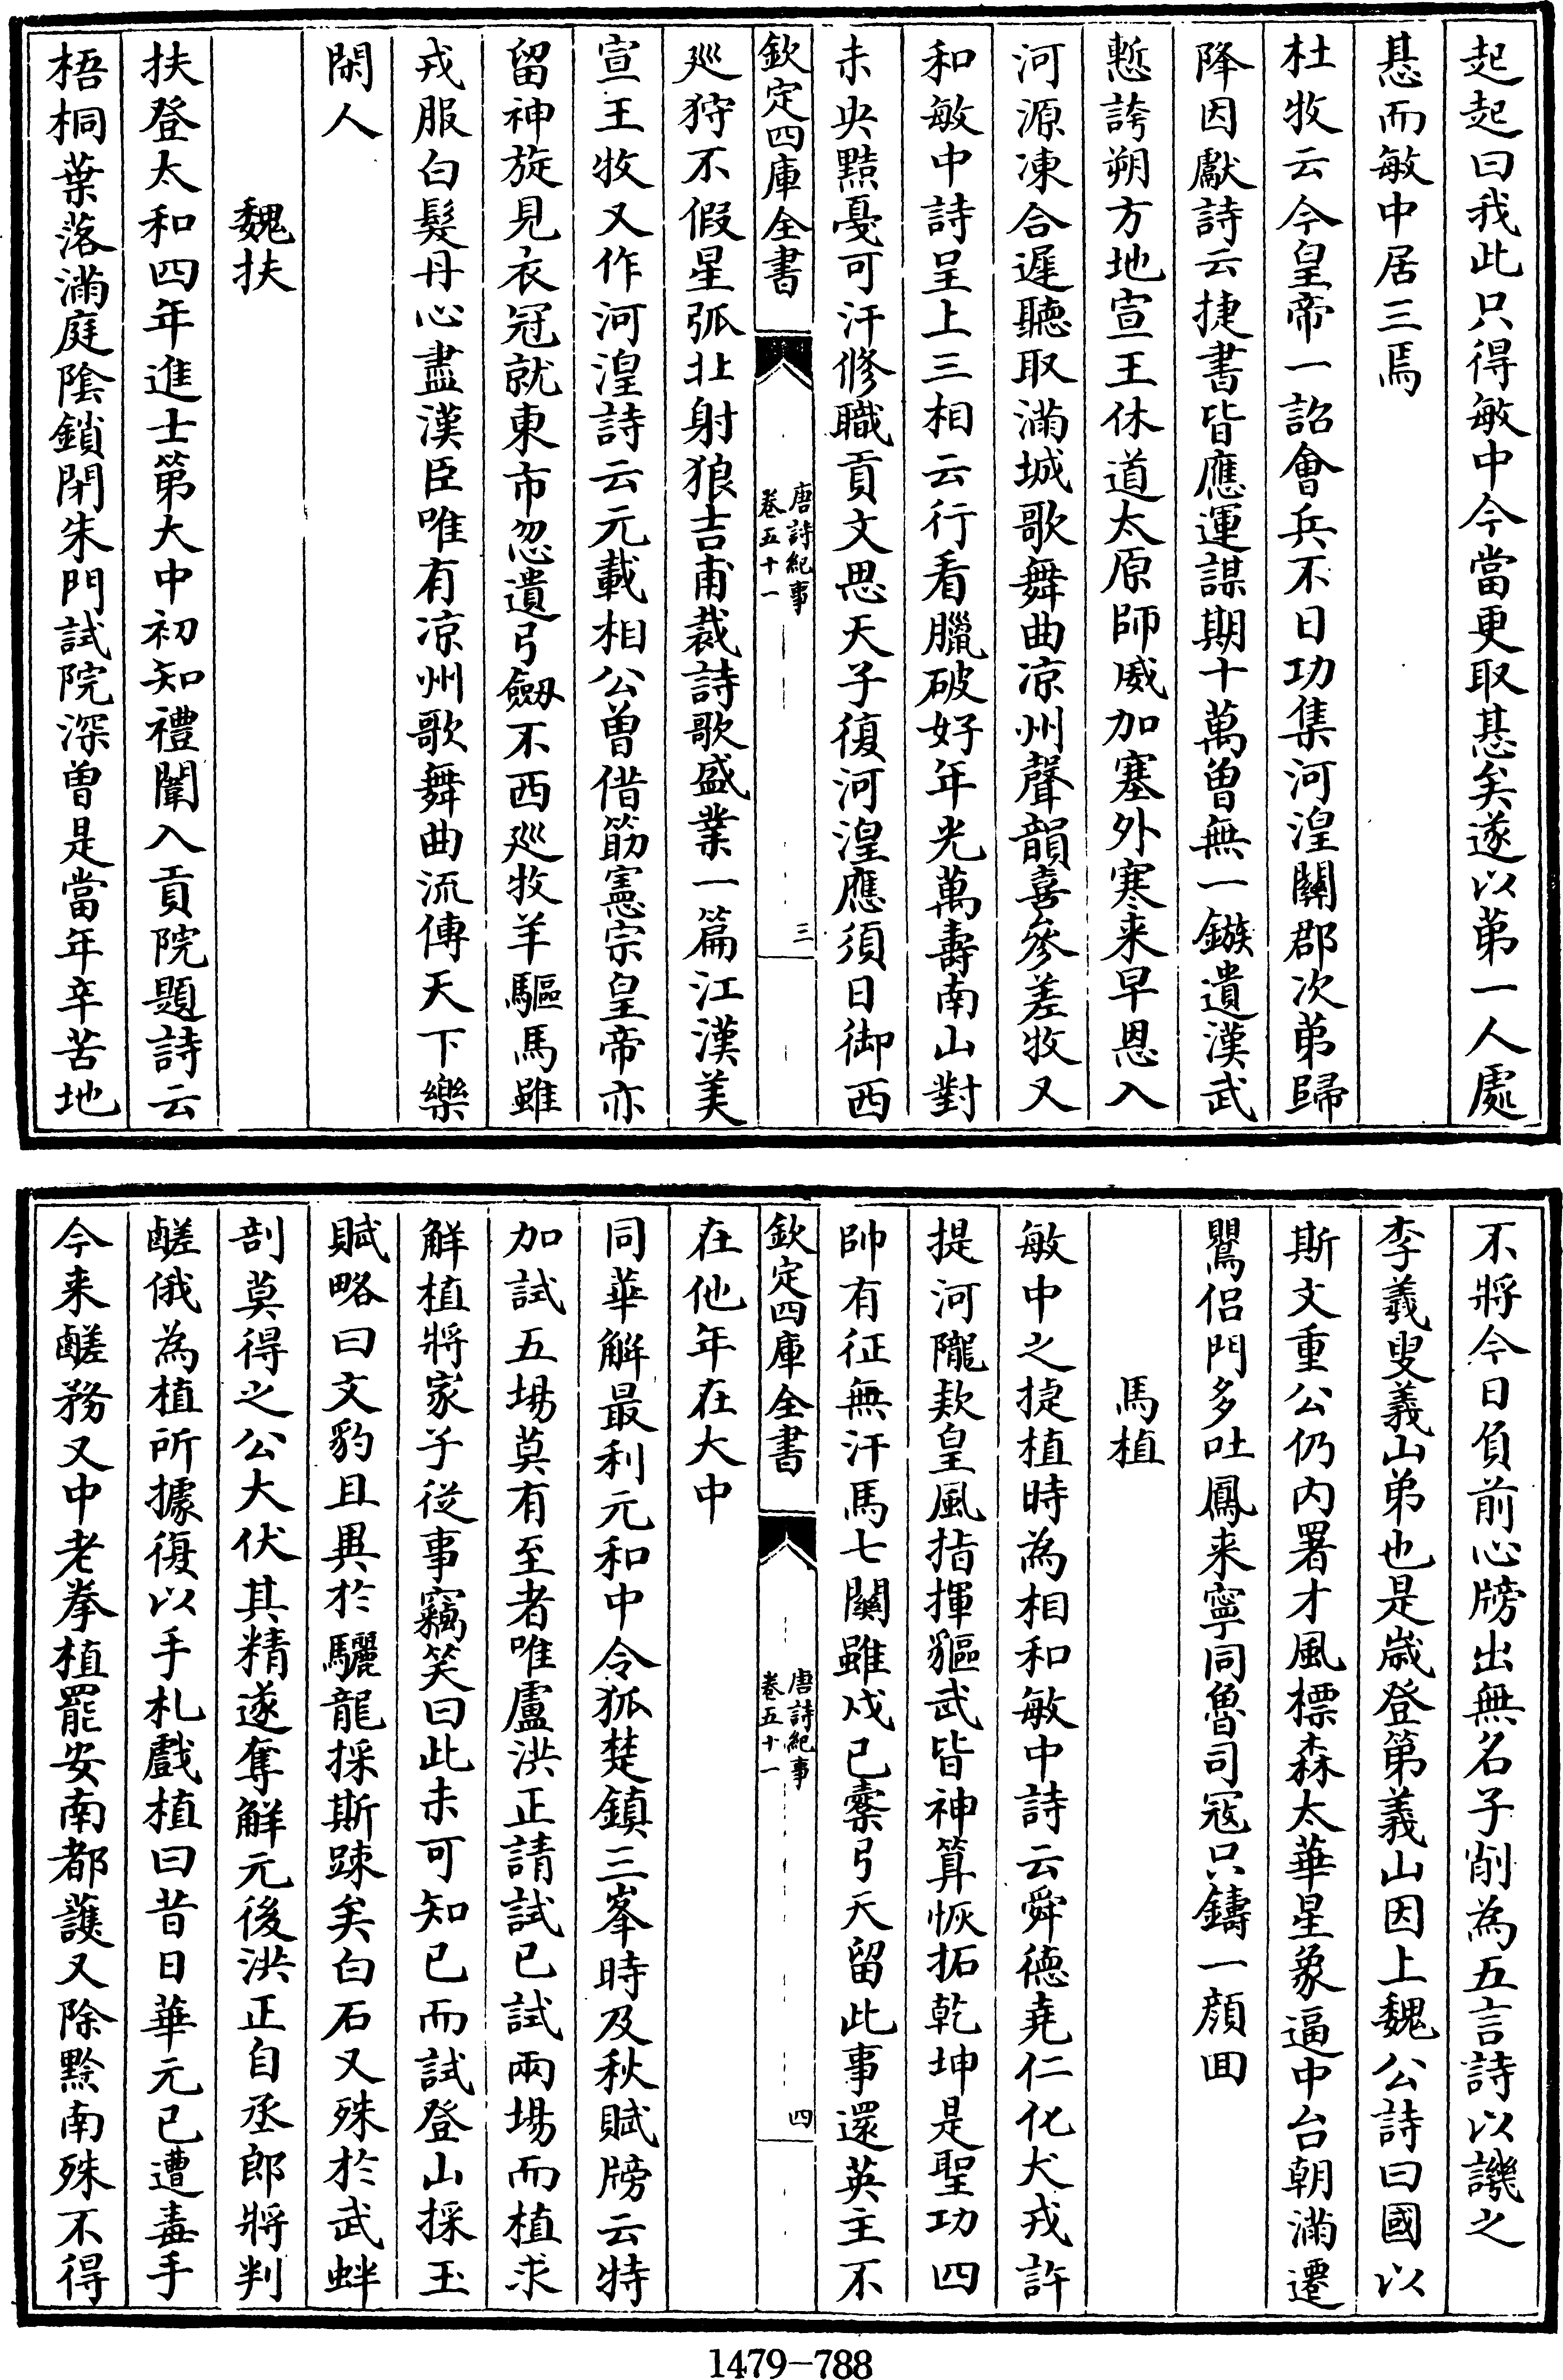 起起曰我此只得敏中今當更取惎矣遂以第一人處
惎而敏中居三焉
杜牧云今皇帝一詔會兵不日功集河湟關郡次第歸
降因獻詩云捷書皆應運謀期十萬曾無一鏃遺漢武
慙誇朔方地宣王休道太原師威加塞外寒来早恩入
河源凍合遲聽取滿城歌舞曲凉州聲韻喜參差牧又
和敏中詩呈上三相云行看臘破好年光萬壽南山對
未央黠戛可汗修職貢文思天子復河湟應須日御西
欽定四庫全書
唐詩紀事
卷五十一
三
廵狩不假星弧北射狼吉甫裁詩歌盛業一篇江漢美
宣王牧又作河湟詩云元載相公曽借筯憲宗皇帝亦
留神旋見衣冠就東市忽遺弓劔不西廵牧羊驅馬雖
戎服白髮丹心盡漢臣唯有凉州歌舞曲流傳天下樂
閑人
魏扶
扶登太和四年進士第大中初知禮闈入貢院題詩云
梧桐葉落滿庭隂鎖閉朱門試院深曽是當年辛苦地
不將今日負前心牓出無名子削為五言詩以譏之
李羲叟義山弟也是歲登第義山因上魏公詩曰國以
斯文重公仍内署才風標森太華星象逼中台朝滿遷
鸎侣門多吐鳳来寧同魯司寇只鑄一顔囬
馬植
敏中之捷植時為相和敏中詩云舜徳堯仁化犬戎許
提河隴欵皇風指揮貙武皆神算恢拓乾坤是聖功四
帥有征無汗馬七關雖戍已櫜弓天留此事還英主不
欽定四庫全書
唐詩紀事
卷五十一
四
在他年在大中
同華解最利元和中令狐楚鎮三峯時及秋賦牓云特
加試五場莫有至者唯盧洪正請試已試兩場而植求
解植將家子從事竊笑曰此未可知已而試登山採玉
賦略曰文豹且異於驪龍採斯踈矣白石又殊於武蚌
剖莫得之公大伏其精遂奪解元後洪正自丞郎將判
鹺俄為植所據復以手札戲植曰昔日華元已遭毒手
今来鹺務又中老拳植罷安南都護又除黔南殊不得
1479-788